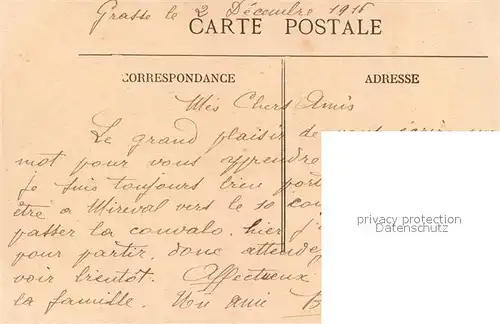 Grasse le 2 Décembre 1916
CARTE POSTALE
CORRESPONDANCE
ADRESSE
Mes Chers Amis
Le grand plaisir de vous écrir un
mot pour vous apprendre
Je suis toujours bien port
être a Mireval vers le 10 cou
passer la convalo. hier j'
pour partir. donc attende
voir bientôt. Affectueux
la famille. Un ami
privacy protection
Watermark